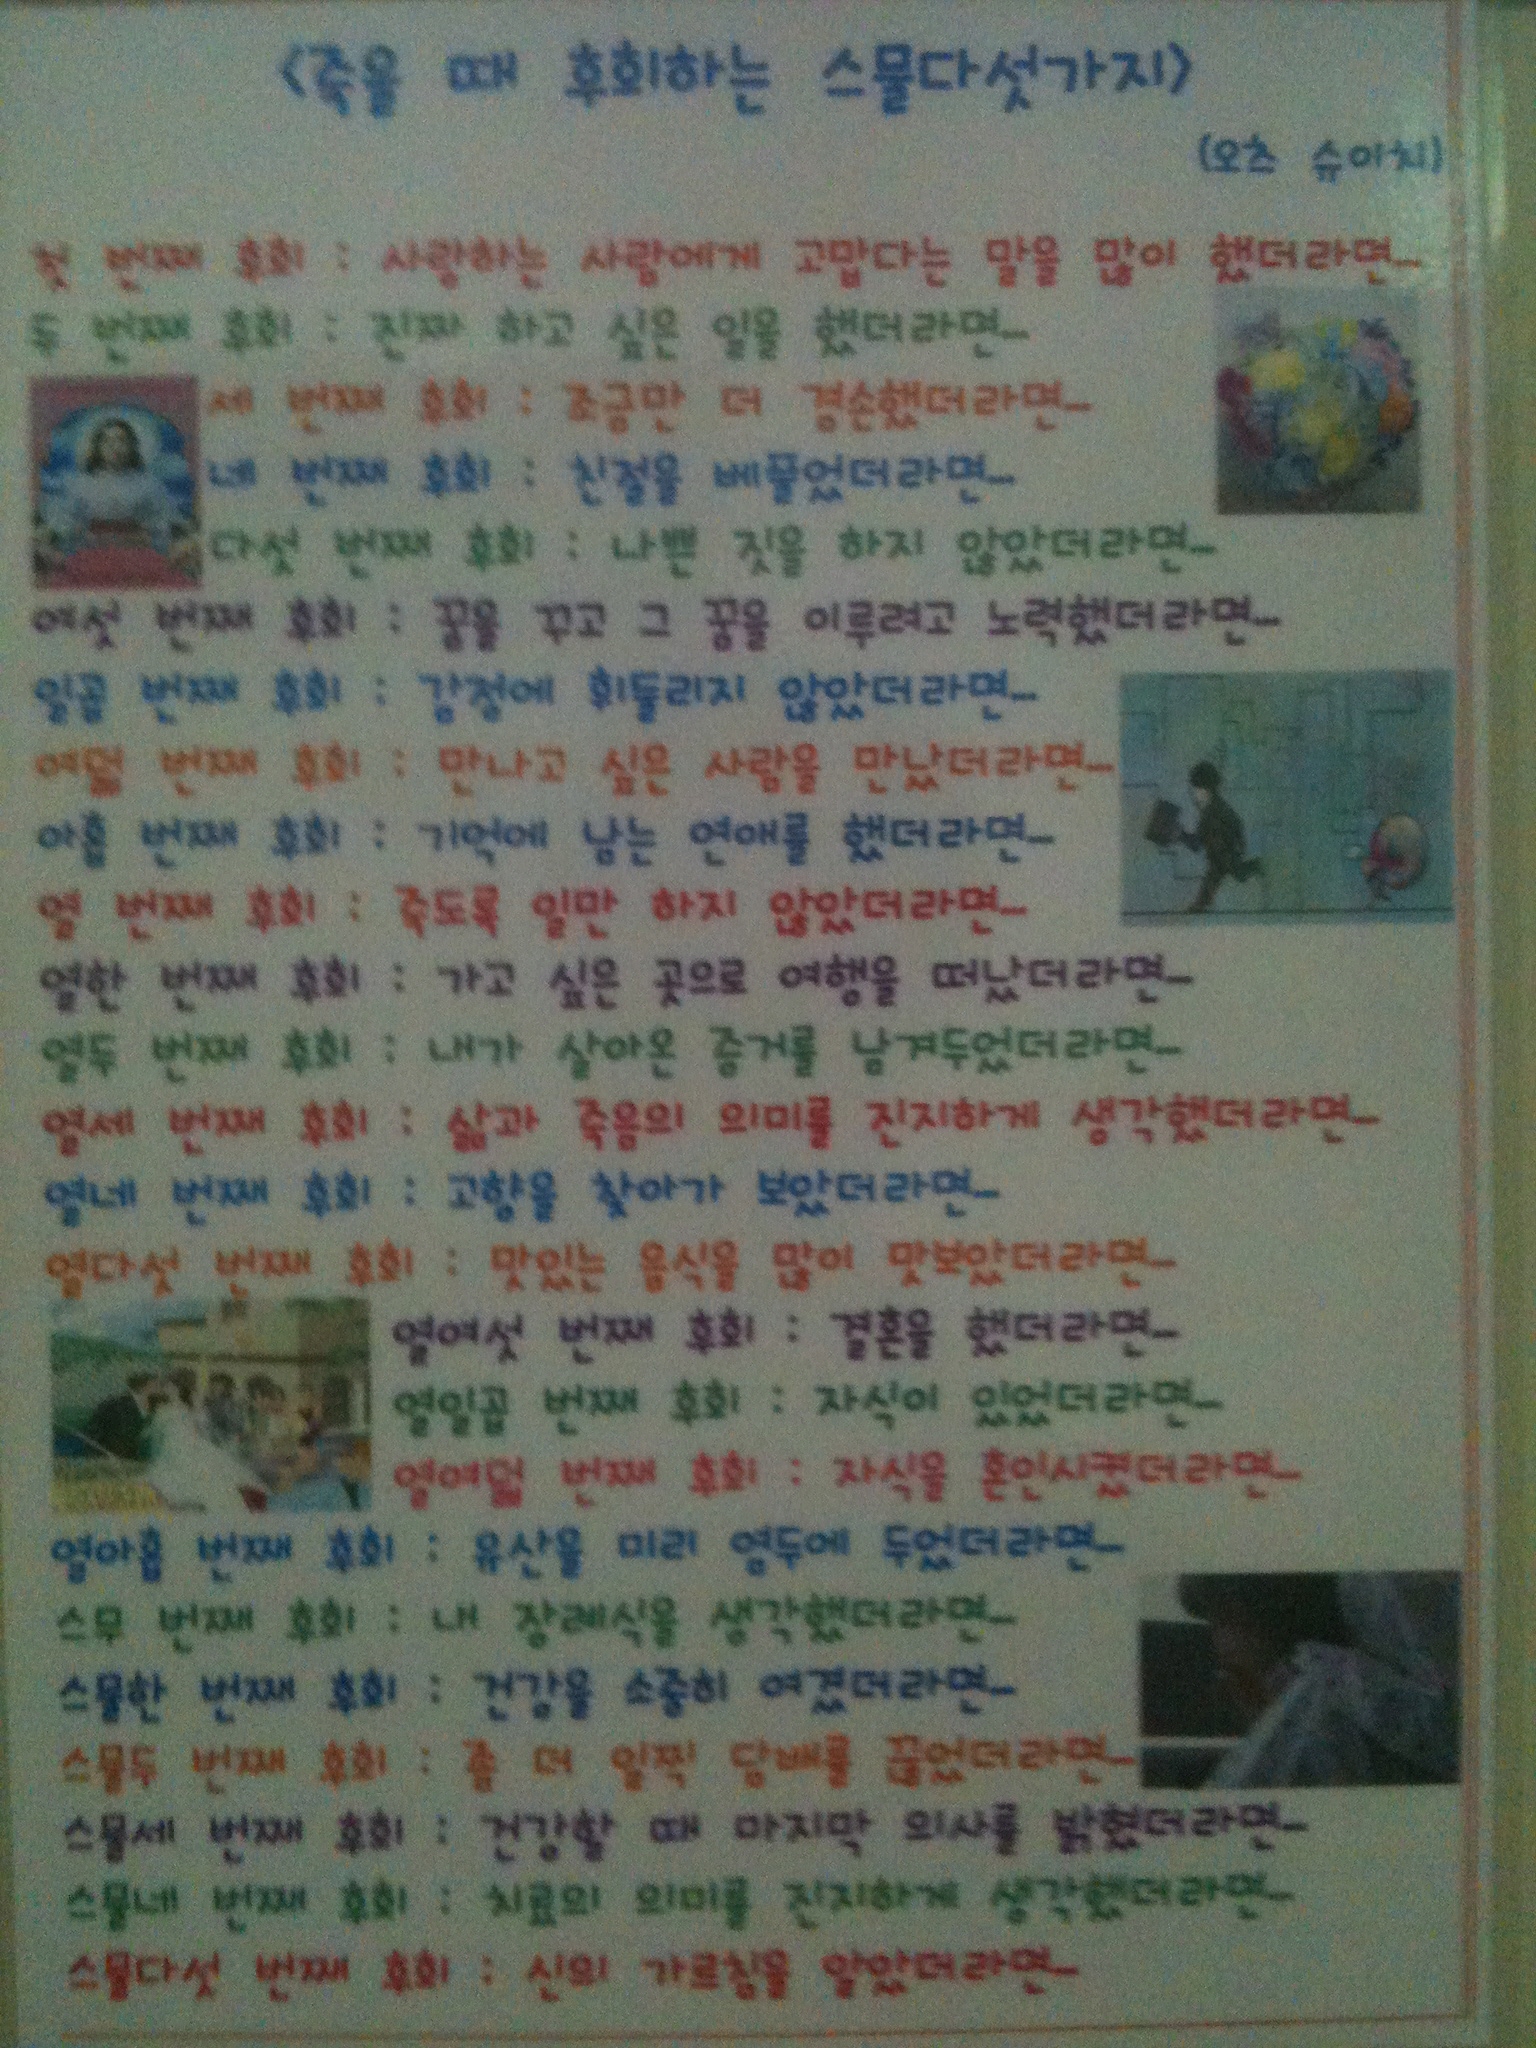 <죽을 때 후회하는 스물다섯가지>
(오츠 슈이치)
첫 번째 후회 : 사랑하는 사람에게 고맙다는 말을 많이 했더라면…
두 번째 후회 : 진짜 하고 싶은 일을 했더라면…
세 번째 후회 : 조금만 더 겸손했더라면…
네 번째 후회 : 친절을 베풀었더라면…
다섯 번째 후회 : 나쁜 짓을 하지 않았더라면…
여섯 번째 후회 : 꿈을 꾸고 그 꿈을 이루려고 노력했더라면…
일곱 번째 후회 : 감정에 휘둘리지 않았더라면…
여덟 번째 후회 : 만나고 싶은 사람을 만났더라면…
아홉 번째 후회 : 기억에 남는 연애를 했더라면…
열 번째 후회 : 죽도록 일만 하지 않았더라면…
열한 번째 후회 : 가고 싶은 곳으로 여행을 떠났더라면…
열두 번째 후회 : 내가 살아온 증거를 남겨두었더라면…
열세 번째 후회 : 삶과 죽음의 의미를 진지하게 생각했더라면…
열네 번째 후회 : 고향을 찾아가 보았더라면…
열다섯 번째 후회 : 맛있는 음식을 많이 맛보았더라면…
열여섯 번째 후회 : 결혼을 했더라면…
열일곱 번째 후회 : 자식이 있었더라면…
열여덟 번째 후회 : 자식을 혼인시켰더라면…
열아홉 번째 후회 : 유산을 미리 염두에 두었더라면…
스무 번째 후회 : 내 장례식을 생각했더라면…
스물한 번째 후회 : 건강을 소중히 여겼더라면…
스물두 번째 후회 : 좀 더 일찍 담배를 끊었더라면…
스물세 번째 후회 : 건강할 때 마지막 의사를 밝혔더라면…
스물네 번째 후회 : 치료의 의미를 진지하게 생각했더라면…
스물다섯 번째 후회 : 신의 가르침을 알았더라면…